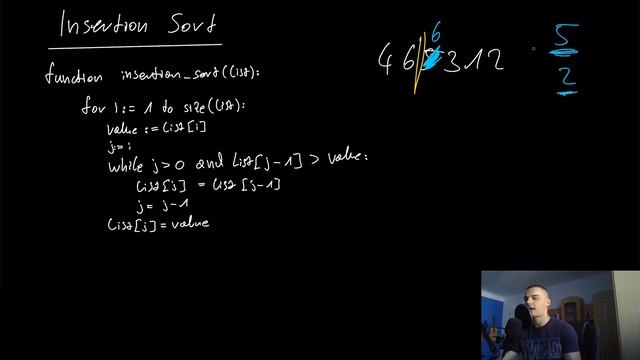 Insertion Sort
function insertion_sort(list):
for i := 1 to size(list):
value := list[i]
j := i
while j > 0 and list[j-1] > value:
list[j] = list[j-1]
j = j-1
list[j] = value
6
4 6 3 1 2
5
2